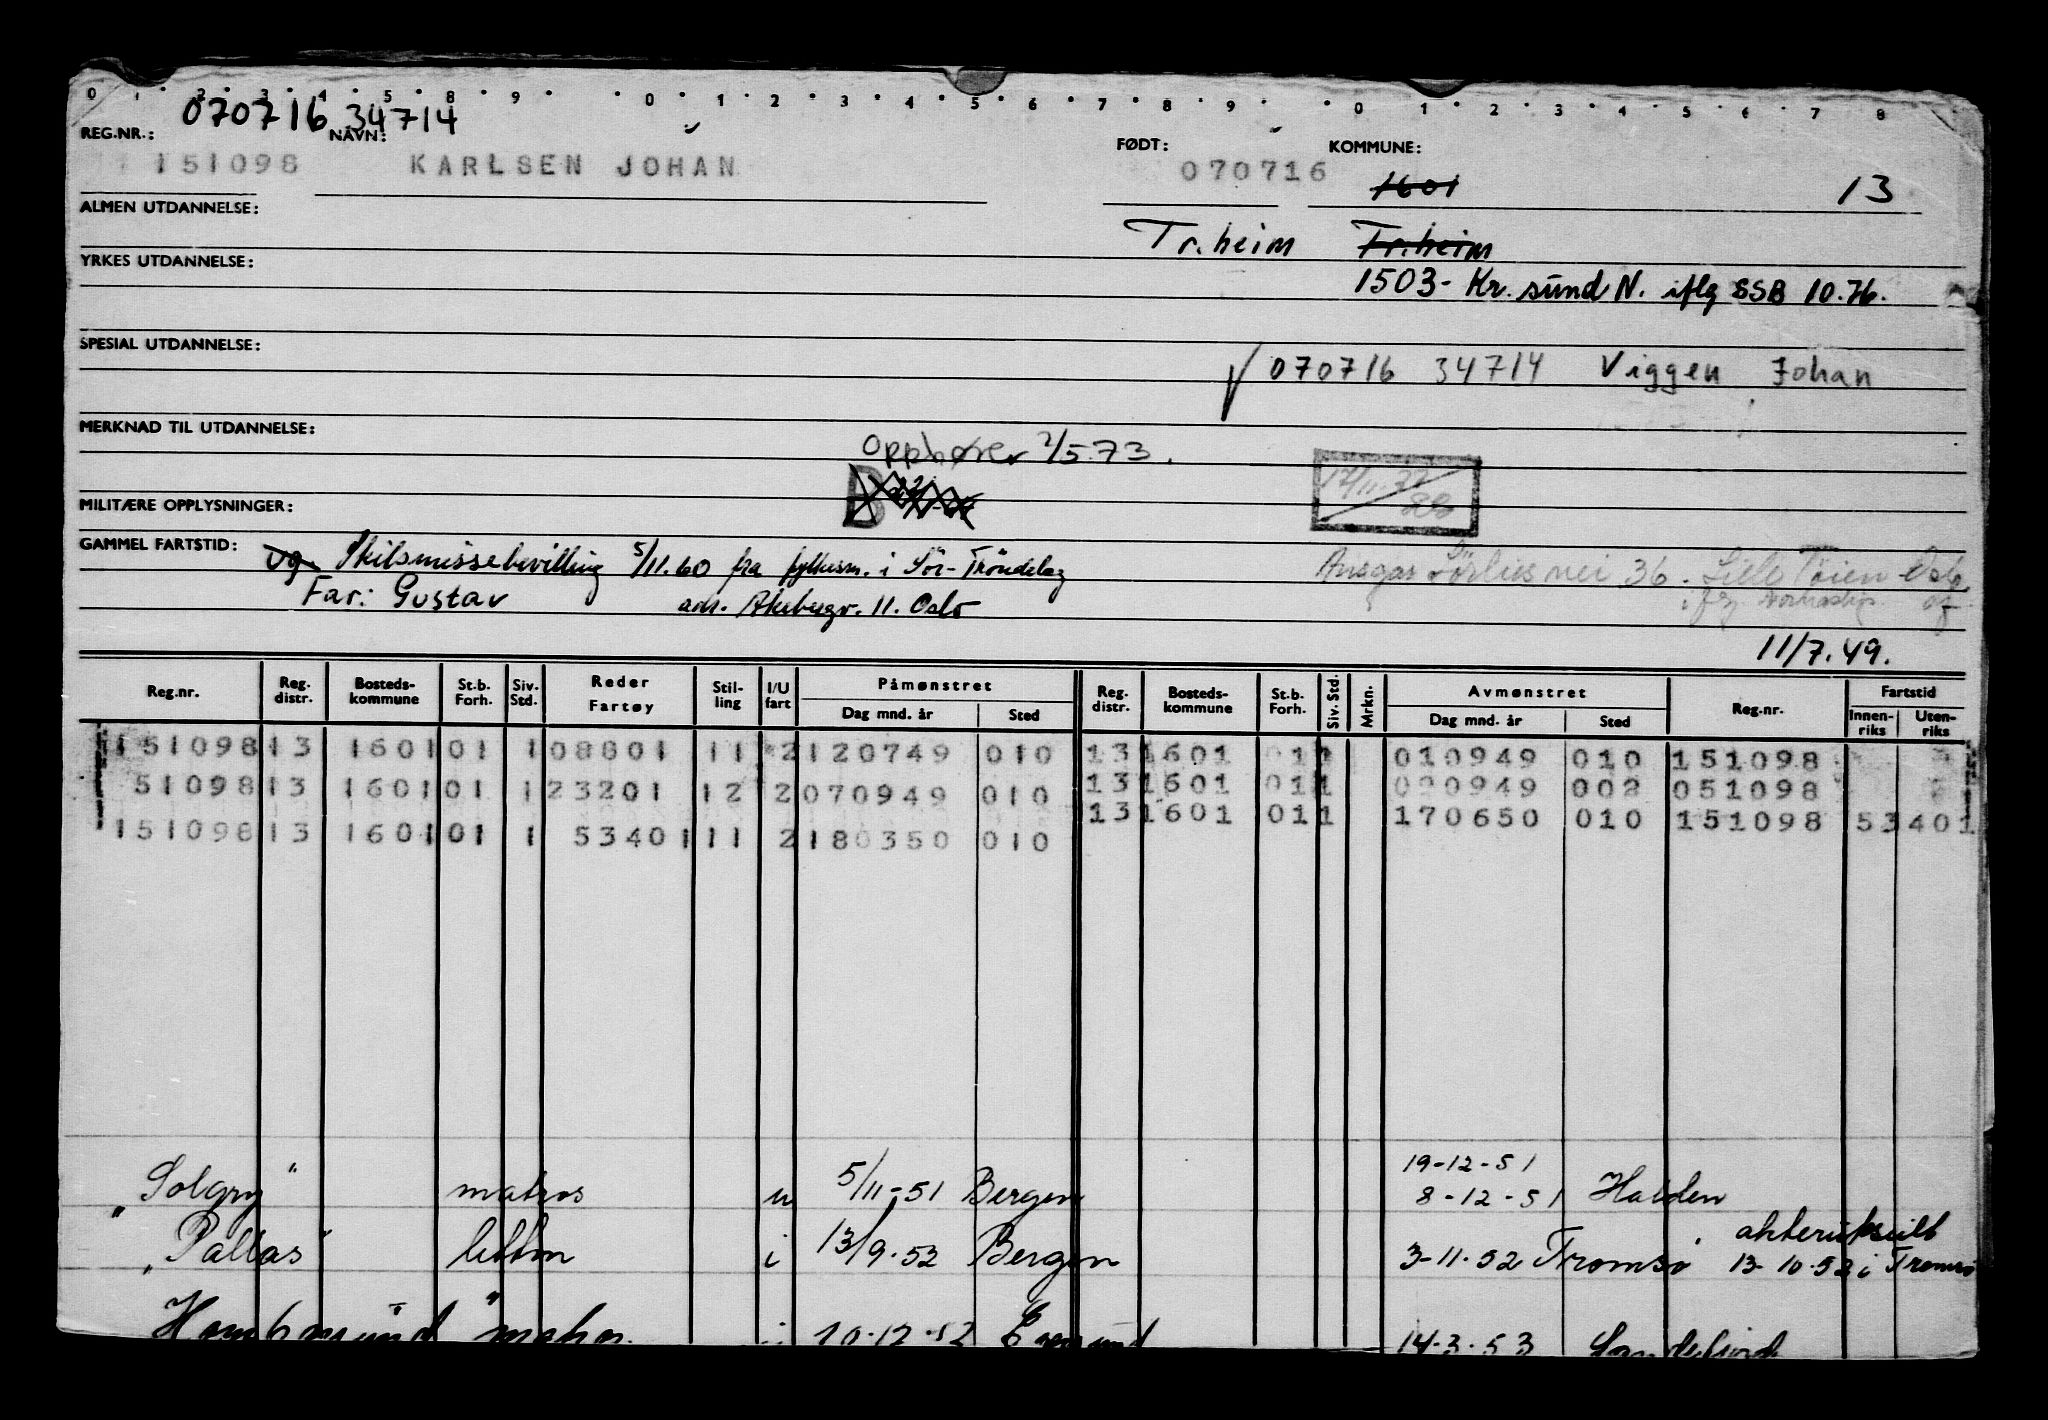 0 1 2 3 4 5 8 9 0 1 2 3 4 5 6 7 8 9 0 1 2 3 4 5 6 7 8
070716 34714
REG.NR.: NAVN: FØDT: KOMMUNE:
151098 KARLSEN JOHAN 070716 1601 13
ALMEN UTDANNELSE:
Tr.heim Tr.heim
YRKES UTDANNELSE:
1503- Kr.sund N. iflg SSB 10.76.
SPESIAL UTDANNELSE:
070716 34714 Viggen Johan
MERKNAD TIL UTDANNELSE:
Opphører 2/5.73.
B
MILITÆRE OPPLYSNINGER:
GAMMEL FARTSTID: Skilsmissebevilling 5/11.60 fra fylkesm. i Sör-Tröndelag
Ansgar Sörlies vei 36. Lille Töien Oslo
Far: Gustav adr. Akebergv. 11. Oslo
11/7.49.
Reg.nr. Reg. distr. Bosteds-kommune St.b. Forh. Siv. Std. Reder Fartøy Stil-ling I/U fart Påmønstret Dag mnd. år Sted Reg. distr. Bosteds-kommune St.b. Forh. Siv. Std. Mrkn. Avmønstret Dag mnd. år Sted Reg.nr. Fartstid Innen-riks Uten-riks
151098 13 1601 01 1 08801 11 2 120749 010 13 1601 01 1 010949 010 151098
51098 13 1601 01 1 23201 12 2 070949 010 13 1601 01 1 020949 002 051098
151098 13 1601 01 1 53401 11 2 180350 010 13 1601 01 1 170650 010 151098 53401
19-12-51
"Solgry" matros u 5/11-51 Bergen 8-12-51 Halden
"Pallas" lettm i 13/9.52 Bergen 3-11.52 Tromsö akterutseilt 13-10.52 i Tromsö
Homborsund" matros i 10.12.52 Egersund 14.3.53 Sandefjord